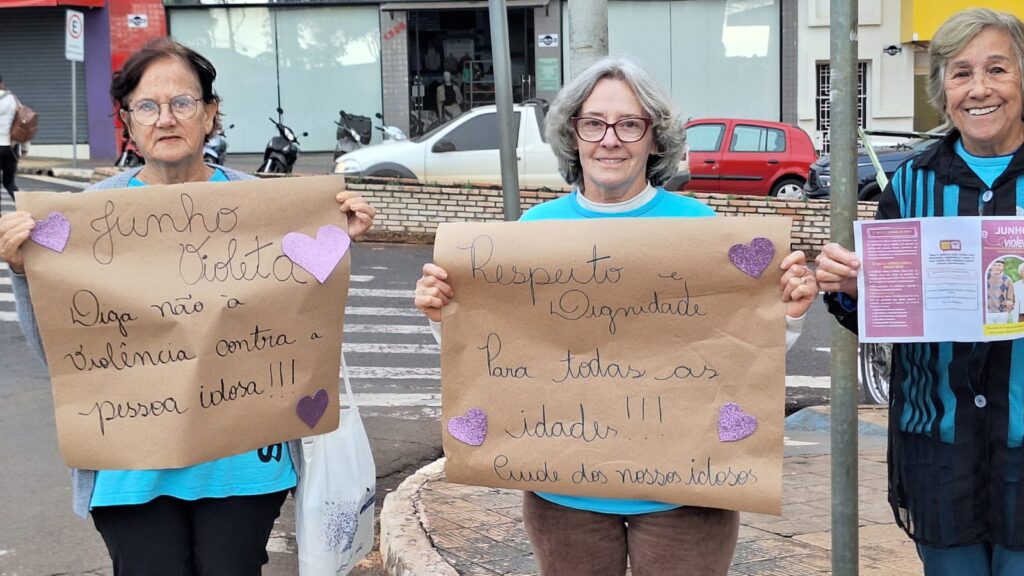 Junho
Violeta
Diga não à
violência contra a
pessoa idosa!!!
Respeito e
Dignidade
Para todas as
idades!!!
Cuide dos nossos idosos
JUNHO
E